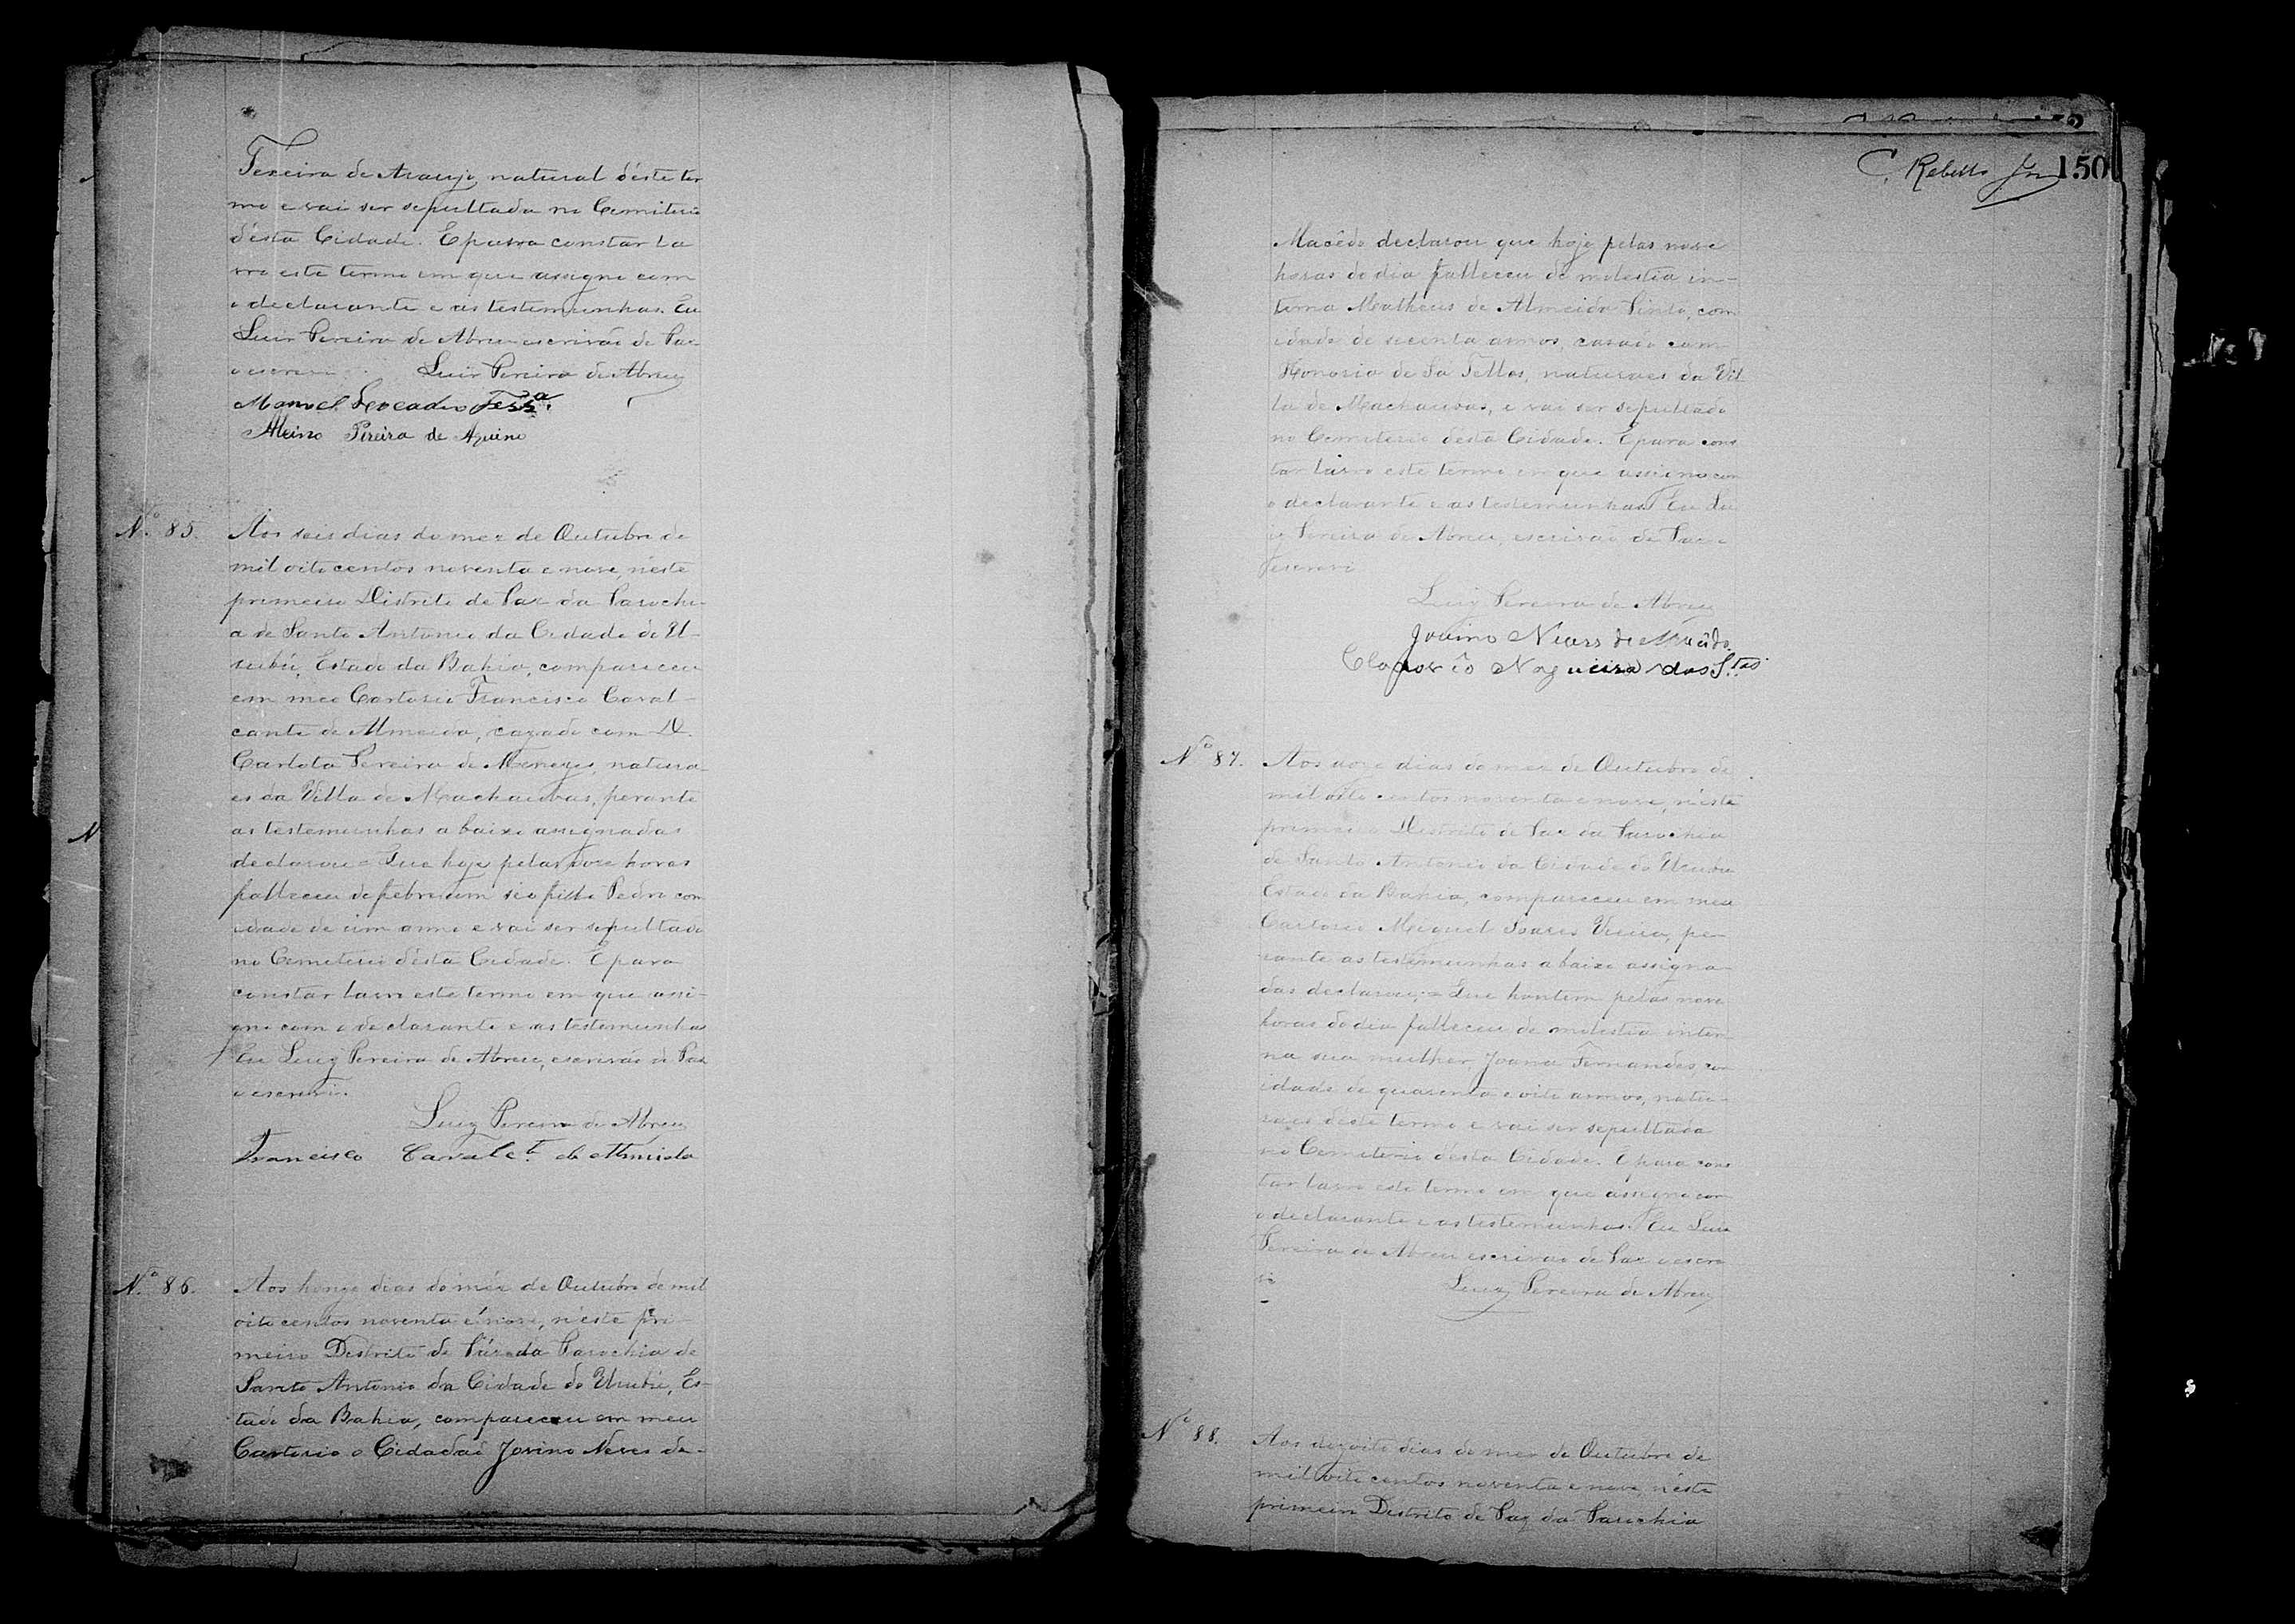 Texeira de Araujo, natural déste ter
mo e vai ser sepultada no Cemiterio
désta Cidade. E para constar la
vro este termo em que assigno com
o declarante e as testemunhas. Eu
Luiz Pereira de Abreu escrivão de Paz
o escrevi. Luiz Pereira de Abreu
Manoel Leocadio
Alcino Pereira de Aquino
Nº 85. Aos seis dias do mez de Outubro de
mil oito centos noventa e nove, néste
primeiro Districto de Paz da Parochi-
a de Santo Antonio da Cidade do U-
rubú, Estado da Bahia, compareceu
em meo Cartorio Francisco Caval-
cante de Almeida, cazado com D.
Carlota Pereira de Menezes, natura-
es da Villa de Machaubas, perante
as testemunhas abaixo assignadas
declarou = Que hoje pelas doze horas
falleceu de febre um seo filho Pedro com
idade de um anno e vai ser sepultado
no Cemeterio désta Cidade. E para
constar lavro este termo em que assi-
gno com o declarante e as testemunhas
Eu Luiz Pereira de Abreu, escrivão de Paz
o escrevi.
Luiz Pereira de Abreu
Francisco Cavalc.te de Almeida
Nº 86. Aos honze dias do méz de Outubro de mil
oito centos noventa e nove, n'este pri-
meiro Destrito de Páz da Parochia de
Santo Antonio da Cidade do Urubú, Es-
tado da Bahia, compareceu em meu
Cartorio o Cidadaõ Jovino Neves de-
C. Rebello Jor 150
Macêdo declarou que hoje pelas nove
horas do dia falleceu de molestia in-
terna Matheus de Almeida Pinto, com
idade de secenta annos, casado com
Honoria de Sa Telles, naturaes da Vil
la de Machaubas, e vai ser sepultado
no Cemiterio désta Cidade. E para cons
tar lavro este termo em que assigno com
o declarante e as testemunhas. Eu Lu
iz Pereira de Abreu, escrivão de Paz o
escrevi
Luiz Pereira de Abreu
Jovino Neves de Macêdo
Nogueira dos S.tos
Nº 87. Aos doze dias do mez de Outubro de
mil oito centos noventa e nove, néste
primeiro Districto de Paz da Parochia
de Santo Antonio da Cidade do Urubu
Estado da Bahia, compareceu em meu
Cartorio Miguel Soares Vieira, pe-
rante as testemunhas abaixo assigna-
das declarou; = Que hontem pelas nove
horas do dia falleceu de molestia inter-
na sua mulher Joana Fernandes, com
idade de quarenta e oito annos, natu-
raes déste termo e vai ser sepultada
no Cemiterio désta Cidade. E para cons
tar lavro este termo em que assigno com
o declarante e as testemunhas. Eu Luiz
Pereira de Abreu escrivão de Paz o escre
vi
Luiz Pereira de Abreu
Nº 88. Aos dezoito dias do mez de Outubro de
mil oito centos noventa e nove, néste
primeiro Districto de Paz da Parochia